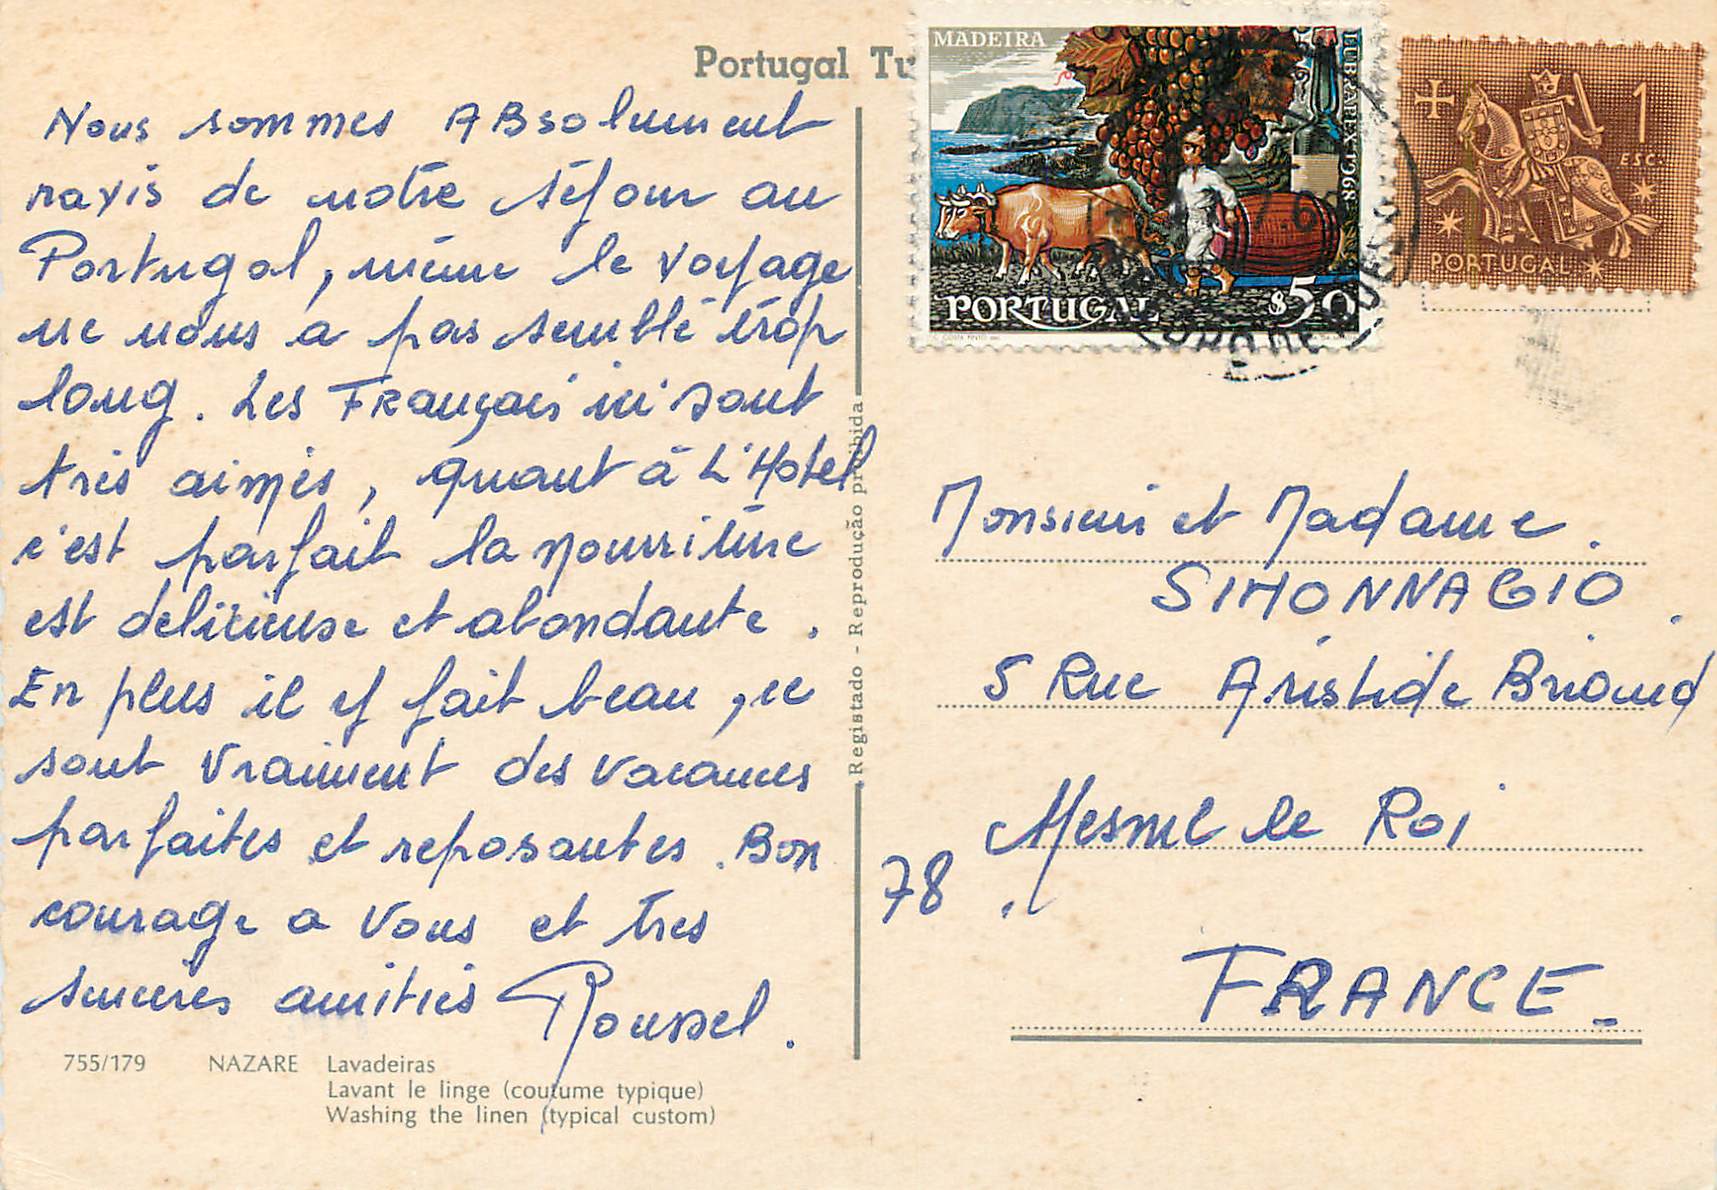 Portugal Tu
Nous sommes ABsolument
ravis de notre séjour au
Portugal, même le voyage
ne nous a pas semblé trop
long. Les Français ici sont
très aimés, quant à L'Hotel
c'est parfait la nourriture
est delicieuse et abondante.
En plus il y fait beau, ce
sont vraiment des vacances
parfaites et reposantes. Bon
courage a vous et très
sincères amitiés Roussel.
755/179 NAZARE Lavadeiras
Lavant le linge (coutume typique)
Washing the linen (typical custom)
Registado - Reprodução proibida
MADEIRA
LUBRAPEX 1968
PORTUGAL $50
1
ESC.
PORTUGAL
Monsieur et Madame.
SIMONNAGIO.
5 Rue Aristide Briand
Mesnil le Roi
78.
FRANCE_